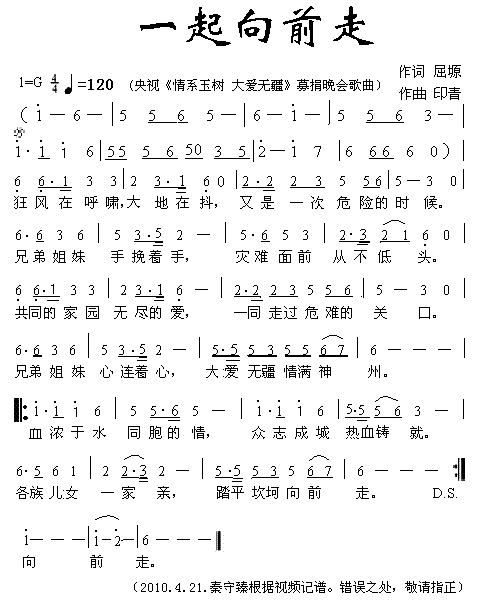 一起向前走
1=G 4/4 ♩=120 (央视《情系玉树 大爱无疆》募捐晚会歌曲)
作词 屈塬
作曲 印青
( i — 6 — | 5 5 6 5 — | i — 6 — | 5 5 6 3 — |
i· i i 6 | 55 5 6 50 3 5 | 2 — i 7 | 6 66 6 0 ) |
6 6·1 3 3 | 2 3·1 6 0 | 2·2 2 3 5 56 | 5 — 3 0 |
狂风在呼啸,大地在抖,又是一次危险的时候。
6·6 3 6 | 5 3·5 2 — | 5·6 5 3 | 2·3 2 1 6 0 |
兄弟姐妹 手挽着手, 灾难面前 从不低头。
6 6·1 3 3 | 2 3·1 6 — | 2·2 2 3 5 5 6 | 5 — 3 0 |
共同的家园 无尽的爱, 一同走过危难的关口。
6·6 3 6 | 5 3·5 2 — | 5·5 5 3 5 5 6 7 | 6 — — — |
兄弟姐妹 心连着心, 大爱无疆情满神州。
i· i i 6 | 5 5·6 5 — | i· i i 6 | 5·5 5 6 3 — |
血浓于水 同胞的情, 众志成城 热血铸就。
6·5 6 1 | 2 2·3 2 — | 5·5 5 3 5 6 7 | 6 — — — :|
各族儿女 一家亲, 踏平坎坷向前走。 D.S.
i — — — | i — 2 — | 6 — — — |
向 前 走。
(2010.4.21.秦守臻根据视频记谱。错误之处，敬请指正)